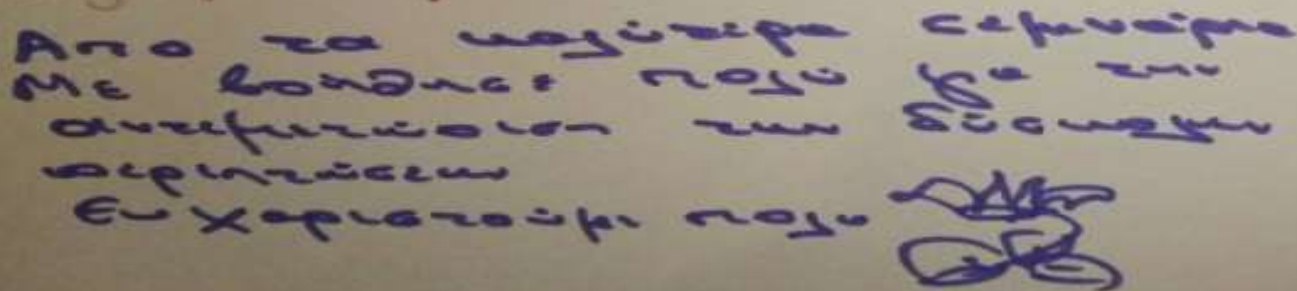 Απο τα καλύτερα σεμινάρια
Με βοήθησε πολύ για την
αντιμετώπιση των δύσκολων
περιπτώσεων
Ευχαριστούμε πολύ